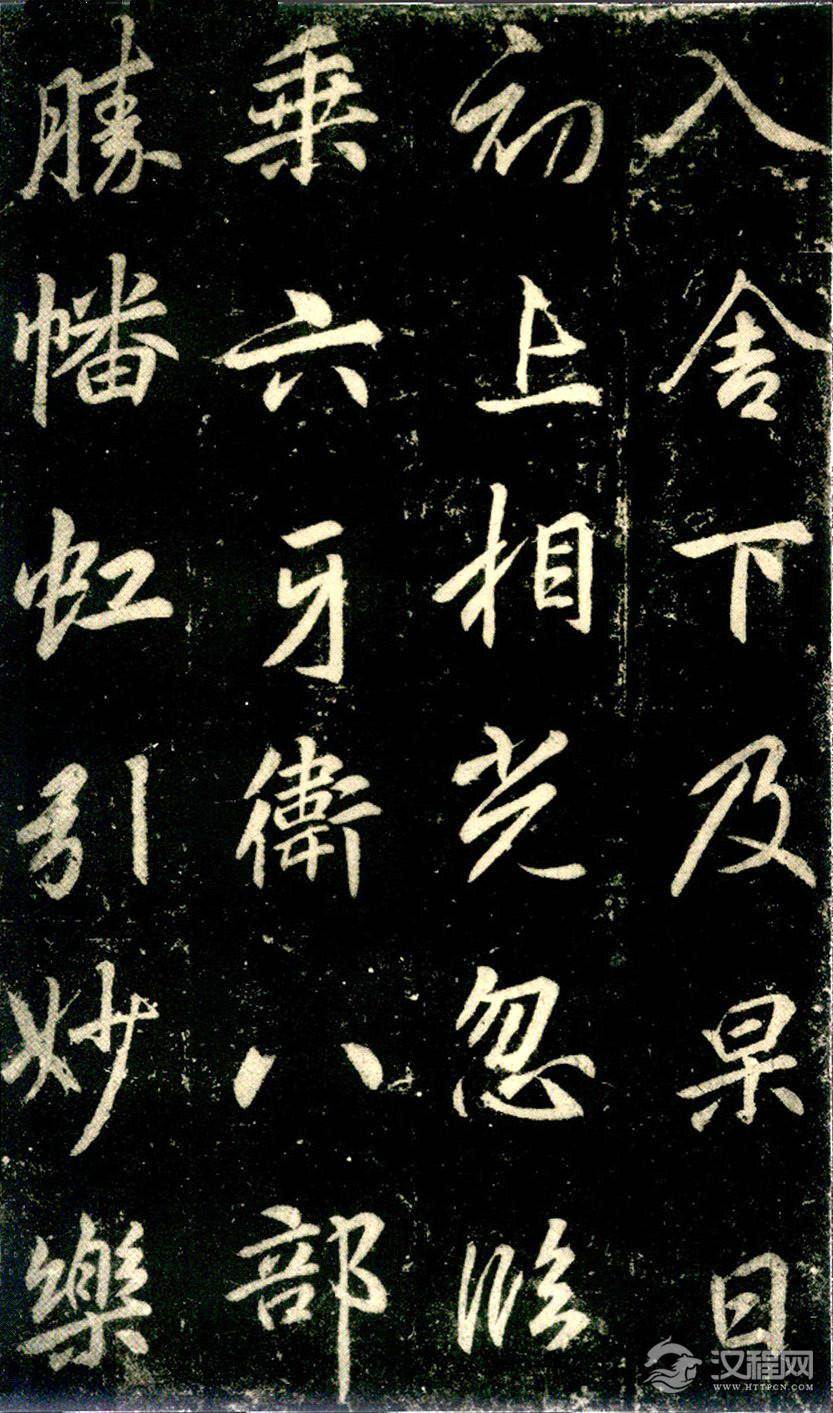 入舍下及杲日
初上相光忽臨
乘六牙衛八部
勝幡虹引妙樂
汉程网
WWW.HTTPCN.COM